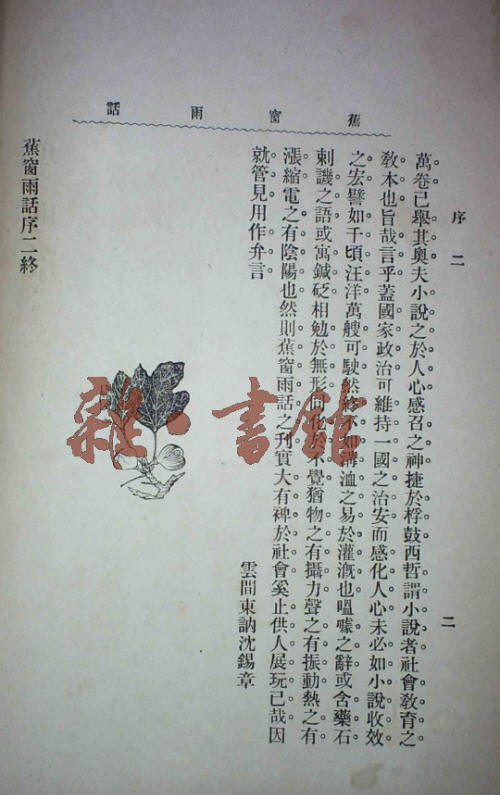 蕉窗雨話
序二
二
萬卷已舉其奧夫小說之於人心感召之神捷於桴鼓西哲謂小說者社會敎育之
敎本也旨哉言乎蓋國家政治可維持一國之治安而感化人心未必如小說收效
之宏譬如千頃汪洋萬艘可駛然不如溝洫之易於灌漑也嗢噱之辭或含藥石
刺譏之語或寓鍼砭相勉於無形同化於不覺猶物之有攝力聲之有振動熱之有
漲縮電之有陰陽也然則蕉窗雨話之刊實大有裨於社會奚止供人展玩已哉因
就管見用作弁言
雲間東訥沈錫章
蕉窗雨話序二終
雜·書館